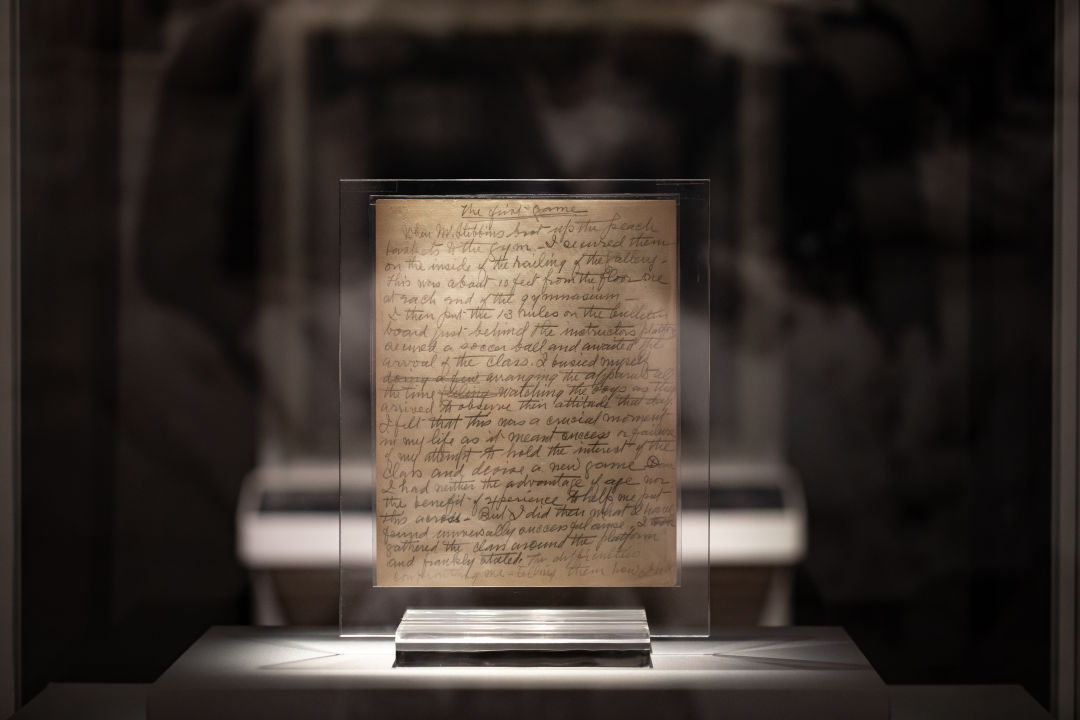 The first game
When Mr. Stebbins brot up the peach
baskets to the gym - I secured them
on the inside of the railing of the gallery -
This was about 10 feet from the floor one
at each end of the gymnasium -
I then put the 13 rules on the bulletin
board just behind the instructors platform
secured a soccer ball and awaited the
arrival of the class. I busied myself
doing a few arranging the apparatus all
the time watching the boys as they
arrived to observe their attitude that day
I felt that this was a crucial moment
in my life as it meant success or failure
of my attempt to hold the interest of the
class and devise a new game
I had neither the advantage of age nor
the benefit of experience to help me put
this across - But I did then what I have
found universally successful since, I
gathered the class around the platform
and frankly stated the difficulties
confronting me - telling them